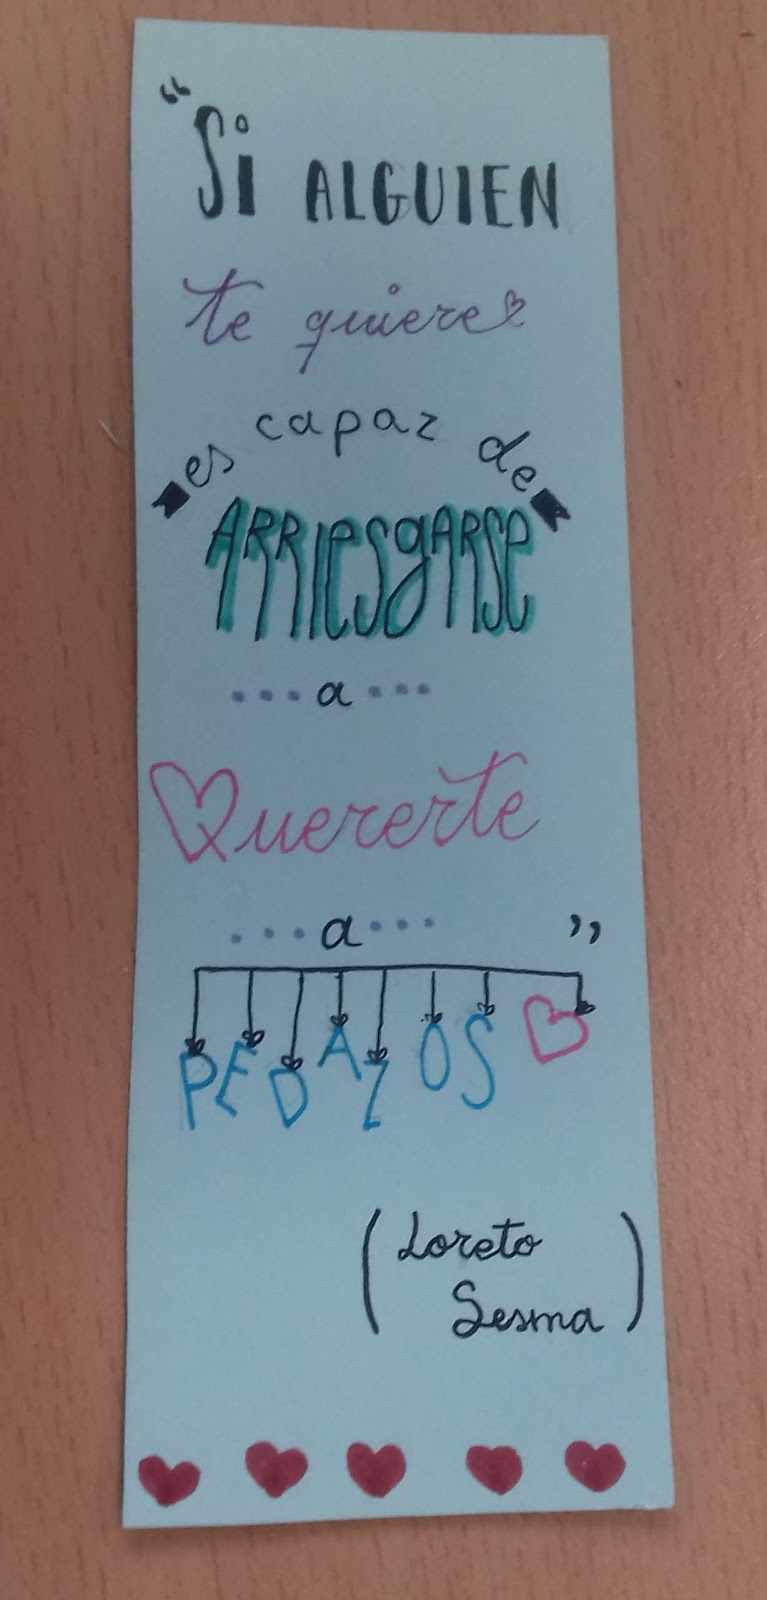 “Si ALGUIEN
te quiere
es capaz de
ARRIesgARSe
...a...
Quererte
...a... ”
PEDAZOS
(Loreto
Sesma)